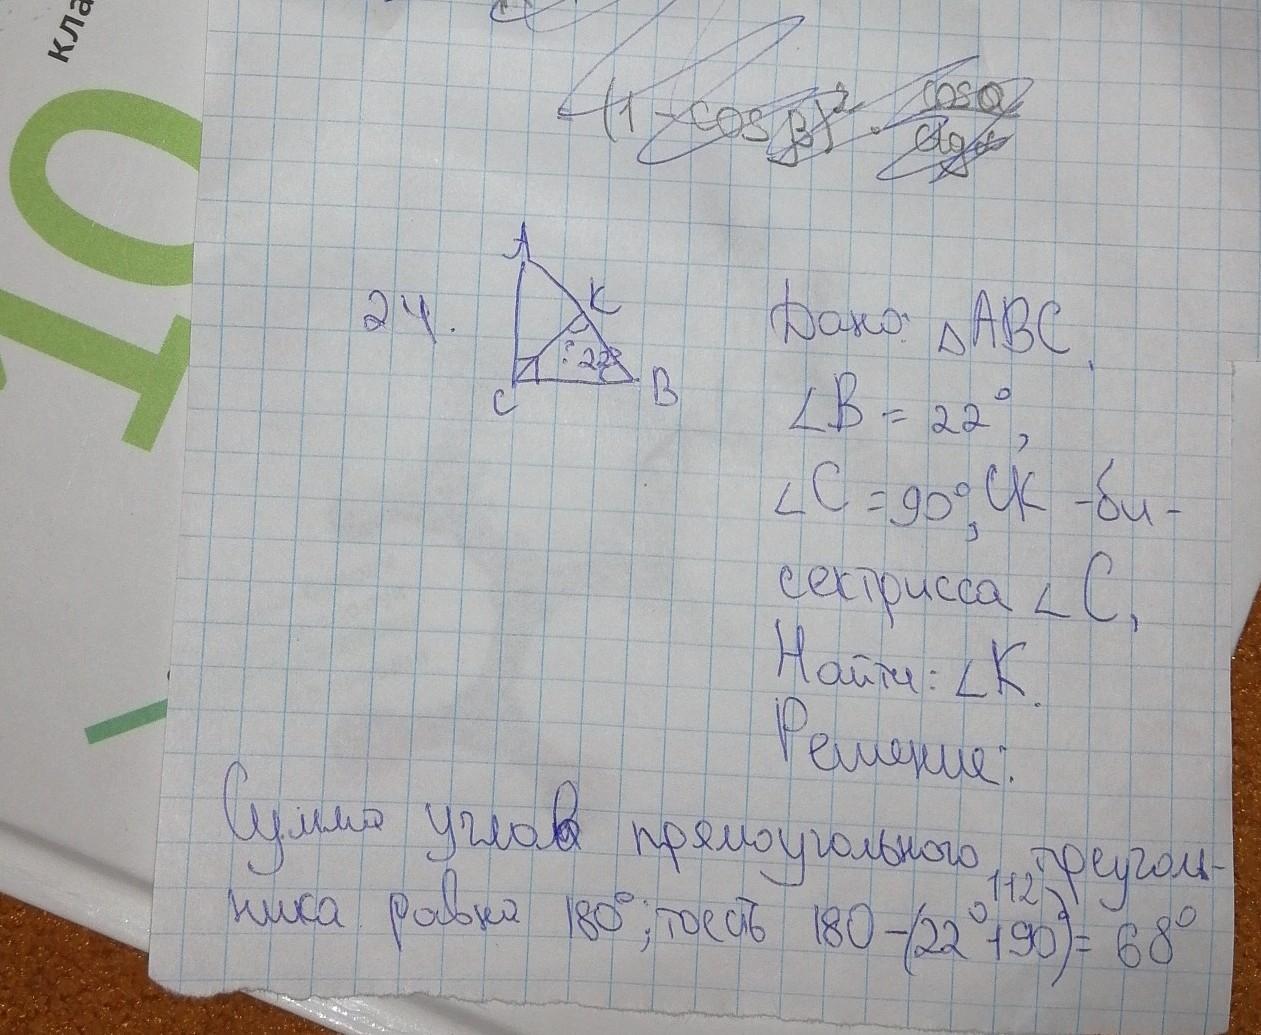 кла
10
(1 - cos β)² · cos α
ctg α
24.
A
K
22°
C
B
Дано: △ABC,
∠B = 22°,
∠C = 90°, CK - би-
сектрисса ∠C,
Найти: ∠K.
Решение:
Сумма углов прямоугольного треуголь-
112
ника равна 180°; тоесть 180 - (22° + 90°) = 68°